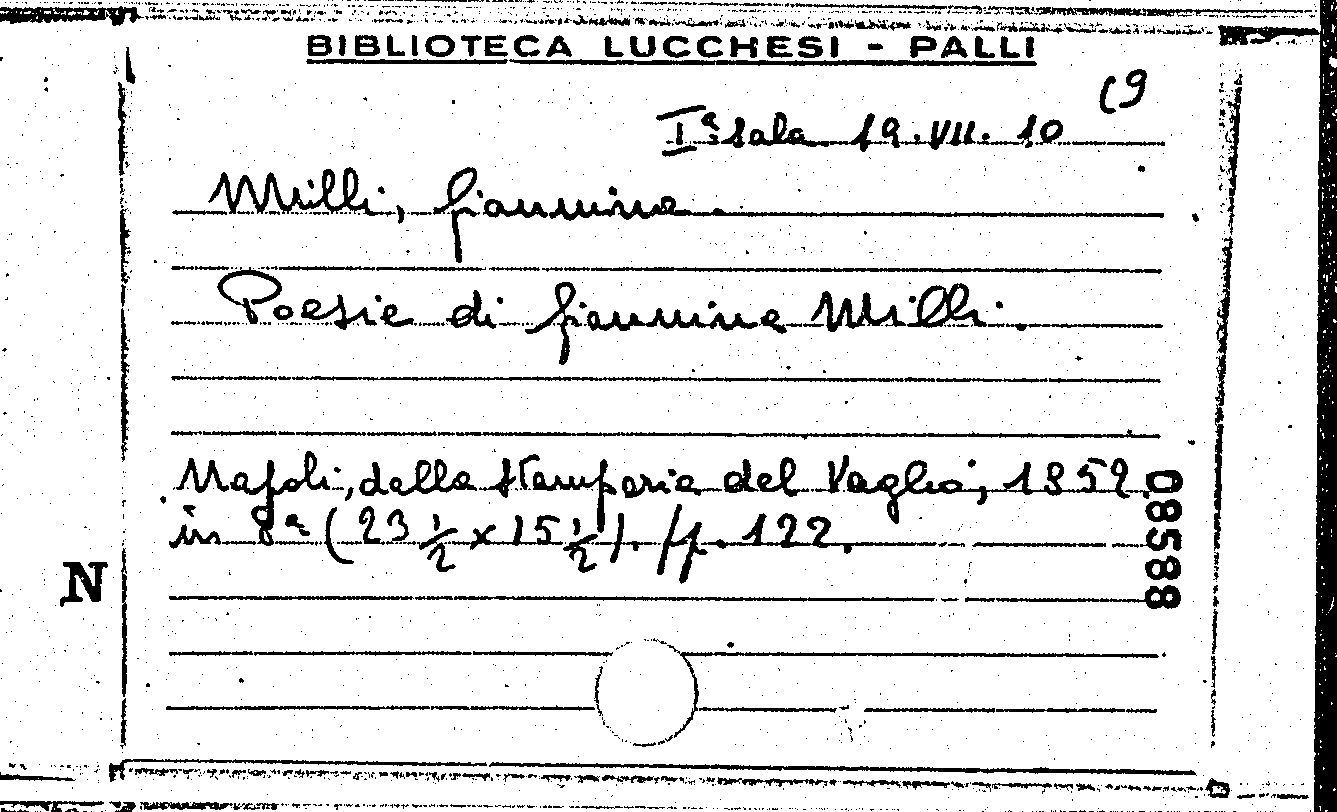 BIBLIOTECA LUCCHESI - PALLI
(9
Iª Sala 19.VII.10
Milli, Giannina.
Poesie di Giannina Milli.
Napoli, dalla Stamperia del Vaglio, 1859
in 8ª (23 1/2 x 15 1/2). pp. 122.
08588
N